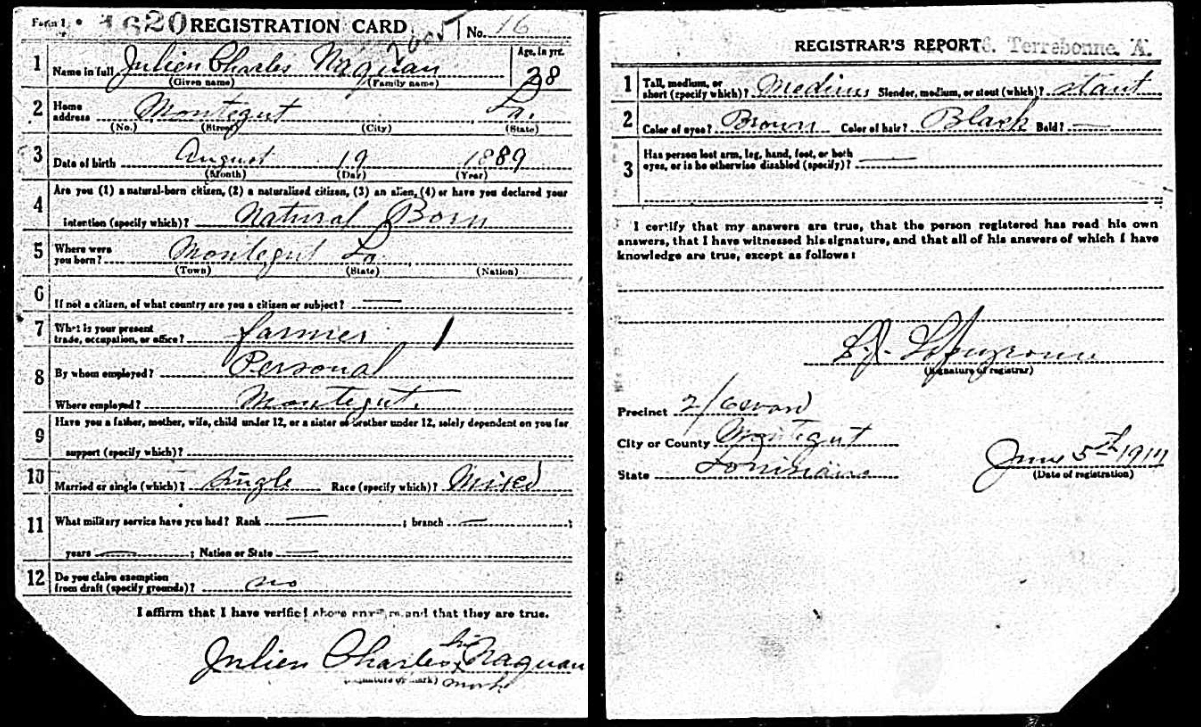 Form 1 1620 REGISTRATION CARD 2005 No. 16
1 Name in full Julien Charles Naquan Age, in yrs. 28
(Given name) (Family name)
2 Home address Montegut La.
(No.) (Street) (City) (State)
3 Date of birth August 19 1889
(Month) (Day) (Year)
4 Are you (1) a natural-born citizen, (2) a naturalized citizen, (3) an alien, (4) or have you declared your
intention (specify which)? Natural Born
5 Where were you born? Montegut La.
(Town) (State) (Nation)
6 If not a citizen, of what country are you a citizen or subject? —
7 What is your present trade, occupation, or office? farmer 1
8 By whom employed? Personal
Where employed? Montegut.
9 Have you a father, mother, wife, child under 12, or a sister or brother under 12, solely dependent on you for
support (specify which)?
10 Married or single (which)? Single Race (specify which)? Mixed
11 What military service have you had? Rank — ; branch — ;
years — ; Nation or State —
12 Do you claim exemption from draft (specify grounds)? no
I affirm that I have verified above answers and that they are true.
Julien Charles his x Naquan
(Signature or mark) mark
REGISTRAR'S REPORT Terrebonne
1 Tall, medium, or short (specify which)? Medium Slender, medium, or stout (which)? stout
2 Color of eyes? Brown Color of hair? Black Bald? —
3 Has person lost arm, leg, hand, foot, or both
eyes, or is he otherwise disabled (specify)? —
I certify that my answers are true, that the person registered has read his own
answers, that I have witnessed his signature, and that all of his answers of which I have
knowledge are true, except as follows:
(Signature of registrar)
Precinct
City or County Montegut
State Louisiana June 5th
(Date of registration)